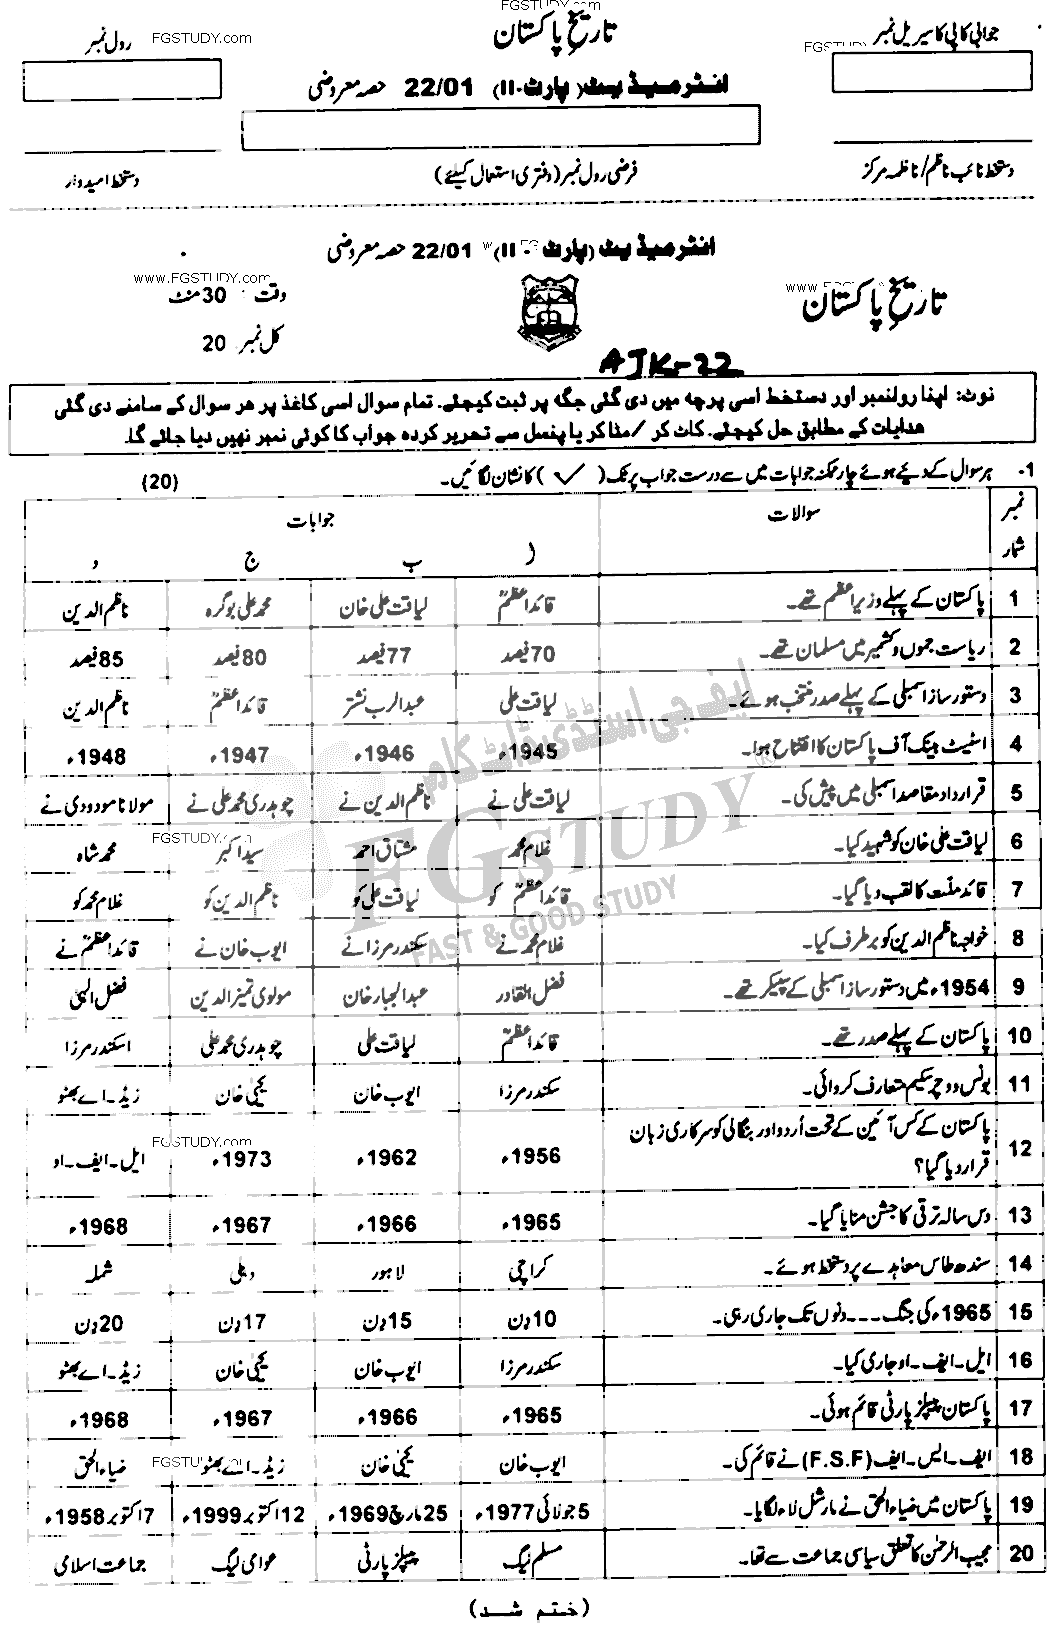 FGSTUDY.com
جوابی کاپی کا سیریل نمبر
تاریخ پاکستان
رول نمبر
FGSTUDY.com
انٹرمیڈیٹ (پارٹ-II) 22/01 حصہ معروضی
دستخط نائب ناظم/ناظمہ مرکز
فرضی رول نمبر (دفتری استعمال کیلئے)
دستخط امیدوار
انٹرمیڈیٹ (پارٹ-II) 22/01 حصہ معروضی
www.FGSTUDY.com
تاریخ پاکستان
وقت: 30 منٹ
کل نمبر 20
AJK-22
نوٹ: اپنا رولنمبر اور دستخط اسی پرچہ میں دی گئی جگہ پر ثبت کیجئے. تمام سوال اسی کاغذ پر ہر سوال کے سامنے دی گئی
ہدایات کے مطابق حل کیجئے. کاٹ کر /مٹا کر یا پنسل سے تحریر کردہ جواب کا کوئی نمبر نہیں دیا جائے گا.
1- ہر سوال کے دیے ہوئے چار ممکنہ جوابات میں سے درست جواب پر ٹک (✓) کا نشان لگائیں۔ (20)
نمبر شمار سوالات جوابات
ا ب ج د
1 پاکستان کے پہلے وزیراعظم تھے۔ قائداعظمؒ لیاقت علی خان محمد علی بوگرہ ناظم الدین
2 ریاست جموں و کشمیر میں مسلمان تھے۔ 70 فیصد 77 فیصد 80 فیصد 85 فیصد
3 دستور ساز اسمبلی کے پہلے صدر منتخب ہوئے۔ لیاقت علی عبدالرب نشتر قائداعظمؒ ناظم الدین
4 اسٹیٹ بینک آف پاکستان کا افتتاح ہوا۔ 1945ء 1946ء 1947ء 1948ء
5 قرارداد مقاصد اسمبلی میں پیش کی۔ لیاقت علی نے ناظم الدین نے چوہدری محمد علی نے مولانا مودودی نے
6 لیاقت علی خان کو شہید کیا۔ غلام محمد مشتاق احمد سید اکبر محمد شاہ
7 قائد ملت کا لقب دیا گیا۔ قائداعظمؒ کو لیاقت علی کو ناظم الدین کو غلام محمد کو
8 خواجہ ناظم الدین کو برطرف کیا۔ غلام محمد نے سکندر مرزا نے ایوب خان نے قائداعظمؒ نے
9 1954ء میں دستور ساز اسمبلی کے سپیکر تھے۔ فضل القادر عبدالجبار خان مولوی تمیز الدین فضل الہٰی
10 پاکستان کے پہلے صدر تھے۔ قائداعظمؒ لیاقت علی چوہدری محمد علی اسکندر مرزا
11 بونس ووچر سکیم متعارف کروائی۔ سکندر مرزا ایوب خان یحییٰ خان زیڈ۔اے بھٹو
12 پاکستان کے کس آئین کے تحت اُردو اور بنگالی کو سرکاری زبان
قرار دیا گیا؟ 1956ء 1962ء 1973ء ایل۔ایف۔او
13 دس سالہ ترقی کا جشن منایا گیا۔ 1965ء 1966ء 1967ء 1968ء
14 سندھ طاس معاہدے پر دستخط ہوئے۔ کراچی لاہور دہلی شملہ
15 1965ء کی جنگ ۔۔۔۔ دنوں تک جاری رہی۔ 10 دن 15 دن 17 دن 20 دن
16 ایل۔ایف۔او جاری کیا۔ سکندر مرزا ایوب خان یحییٰ خان زیڈ۔اے بھٹو
17 پاکستان پیپلز پارٹی قائم ہوئی۔ 1965ء 1966ء 1967ء 1968ء
18 ایف۔ایس۔ایف (F.S.F) نے قائم کی۔ ایوب خان یحییٰ خان زیڈ۔اے بھٹو ضیاء الحق
19 پاکستان میں ضیاء الحق نے مارشل لاء لگایا۔ 5 جولائی 1977ء 25 مارچ 1969ء 12 اکتوبر 1999ء 7 اکتوبر 1958ء
20 مجیب الرحمٰن کا تعلق سیاسی جماعت سے تھا۔ مسلم لیگ پیپلز پارٹی عوامی لیگ جماعت اسلامی
(ختم شد)
ایف جی اسٹڈی ڈاٹ کام
FGSTUDY
FAST & GOOD STUDY